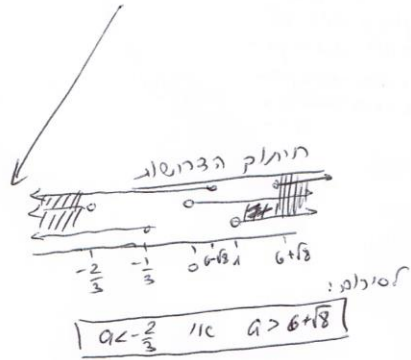 חיתוך הדרישות
-2/3 -1/3 0 6-√8 1 6+√8
לסיכום:
a<-2/3 או a>6+√8